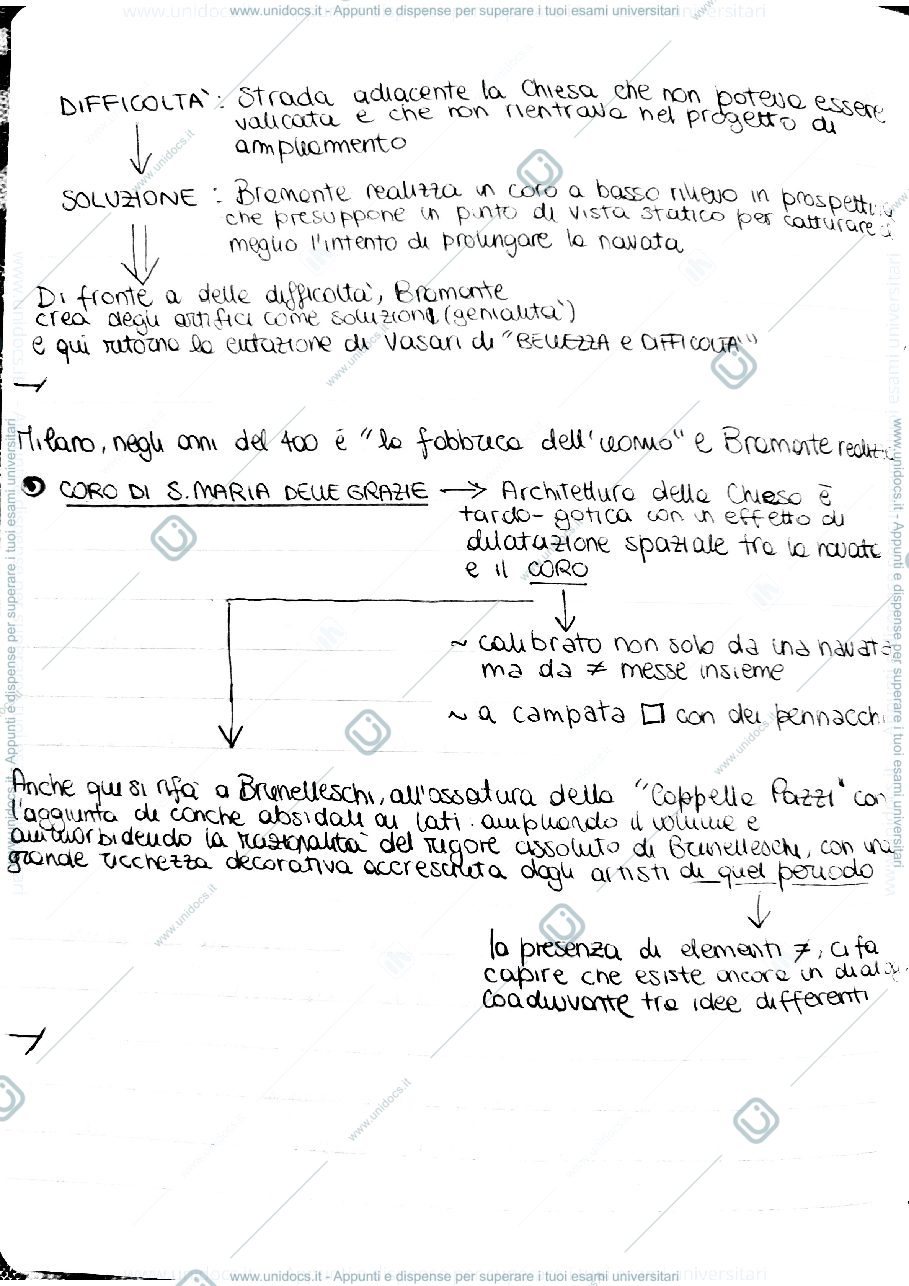 www.unidocs.it - Appunti e dispense per superare i tuoi esami universitari
DIFFICOLTÀ : Strada adiacente la Chiesa che non poteva essere
valicata e che non rientrava nel progetto di
ampliamento
SOLUZIONE : Bramante realizza un coro a basso rilievo in
che presuppone un punto di vista statico per catturare
meglio l'intento di prolungare la navata
Di fronte a delle difficoltà, Bramante
crea degli artifici come soluzioni (genialità)
e qui ritorna la citazione di Vasari di "BELLEZZA e DIFFICOLTÀ"
Milano, negli anni del 400 è "la fabbrica dell'uomo" e Bramante
CORO DI S. MARIA DELLE GRAZIE → Architettura della Chiesa è
tardo-gotica con un effetto di
dilatazione spaziale tra la navata
e il CORO
~ calibrato non solo da una navata
ma da ≠ messe insieme
~ a campata □ con dei pennacchi
Anche qui si rifà a Brunelleschi, all'ossatura della "Cappella Pazzi" con
l'aggiunta di conche absidali ai lati ampliando il volume e
la razionalità del rigore assoluto di Brunelleschi, con una
grande ricchezza decorativa accresciuta dagli artisti di quel periodo
la presenza di elementi ≠, ci fa
capire che esiste ancora un
coadiuvante tra idee differenti
www.unidocs.it - Appunti e dispense per superare i tuoi esami universitari